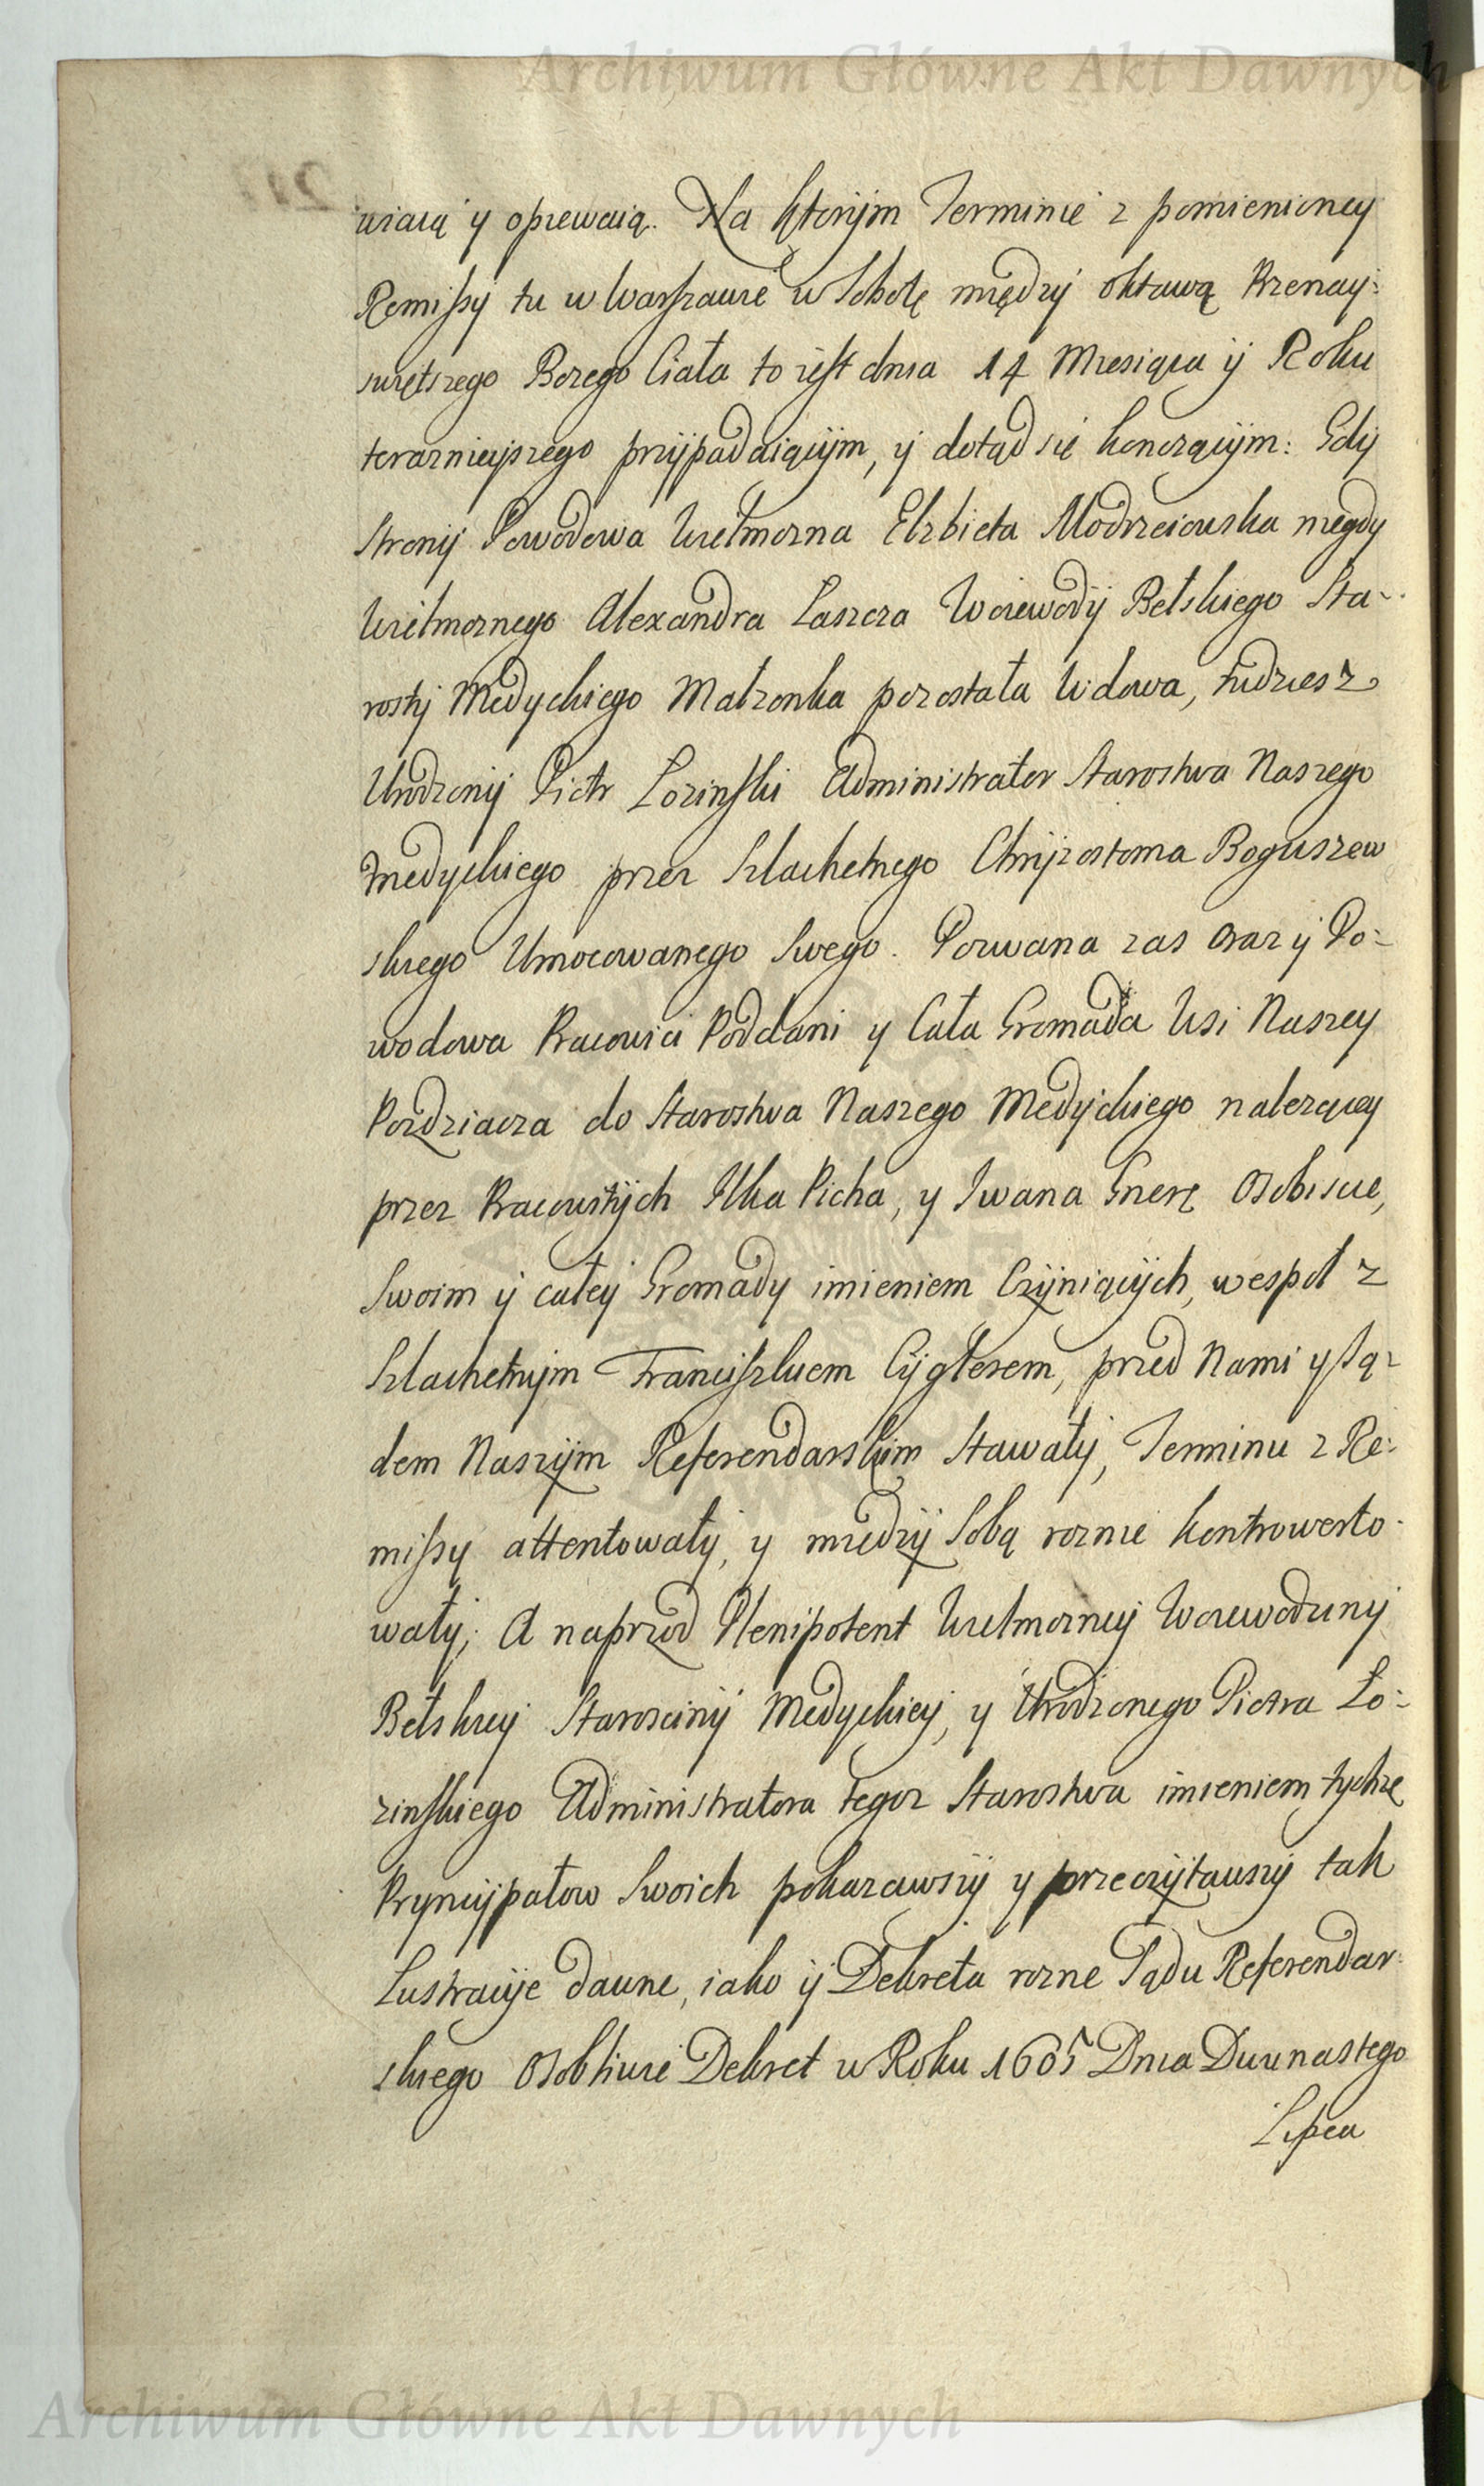 Archiwum Główne Akt Dawnych
wiaią y opiewaią. Na ktorym Terminie z pomienioney
Remissy tu w Warszawie w Sobotę między oktawą Przenay:
swiętszego Bozego Ciała to iest dnia 14 Miesiąca y Roku
terazniejszego przypadaiącym, y dotąd się konczącym: Gdy
Strony Powodowa Wielmozna Elzbieta Modrzeiowska niegdy
Wielmoznego Alexandra Laszcza Woiewody Bełskiego Sta-
rosty Medyckiego Małzonka pozostała Wdowa, tudziesz
Urodzony Piotr Lozinski Administrator Starostwa Naszego
Medyckiego przez Szlachetnego Chryzostoma Boguszew
skiego Umocowanego Swego. Pozwana zas oraz y Po-
wodowa Pracowici Poddani y Cała Gromada Wsi Naszey
Pozdziacza do Starostwa Naszego Medyckiego nalezącey
przez Pracowitych Ilka Picha, y Iwana Gnerę Osobiscie,
Swoim y całey Gromady imieniem Czyniących, wespoł z
Szlachetnym Franciszkiem Cyglerem, przed Nami y Są-
dem Naszym Referendarskim Stawały, Terminu z Re:
missy attentowały, y między Sobą roznie kontrowerto-
wały; A naprzod Plenipotent Wielmozney Woiewodziny
Bełskiey Starosciny Medyckiey, y Urodzonego Piotra Lo:
zinskiego Administratora tegoz Starostwa imieniem tychze
Pryncypałow Swoich pokazawszy y przeczytawszy tak
Lustracye dawne, iako y Dekreta rozne Sądu Referendar:
skiego Osobliwie Dekret w Roku 1605 Dnia Dwunastego
Lipca
Archiwum Główne Akt Dawnych